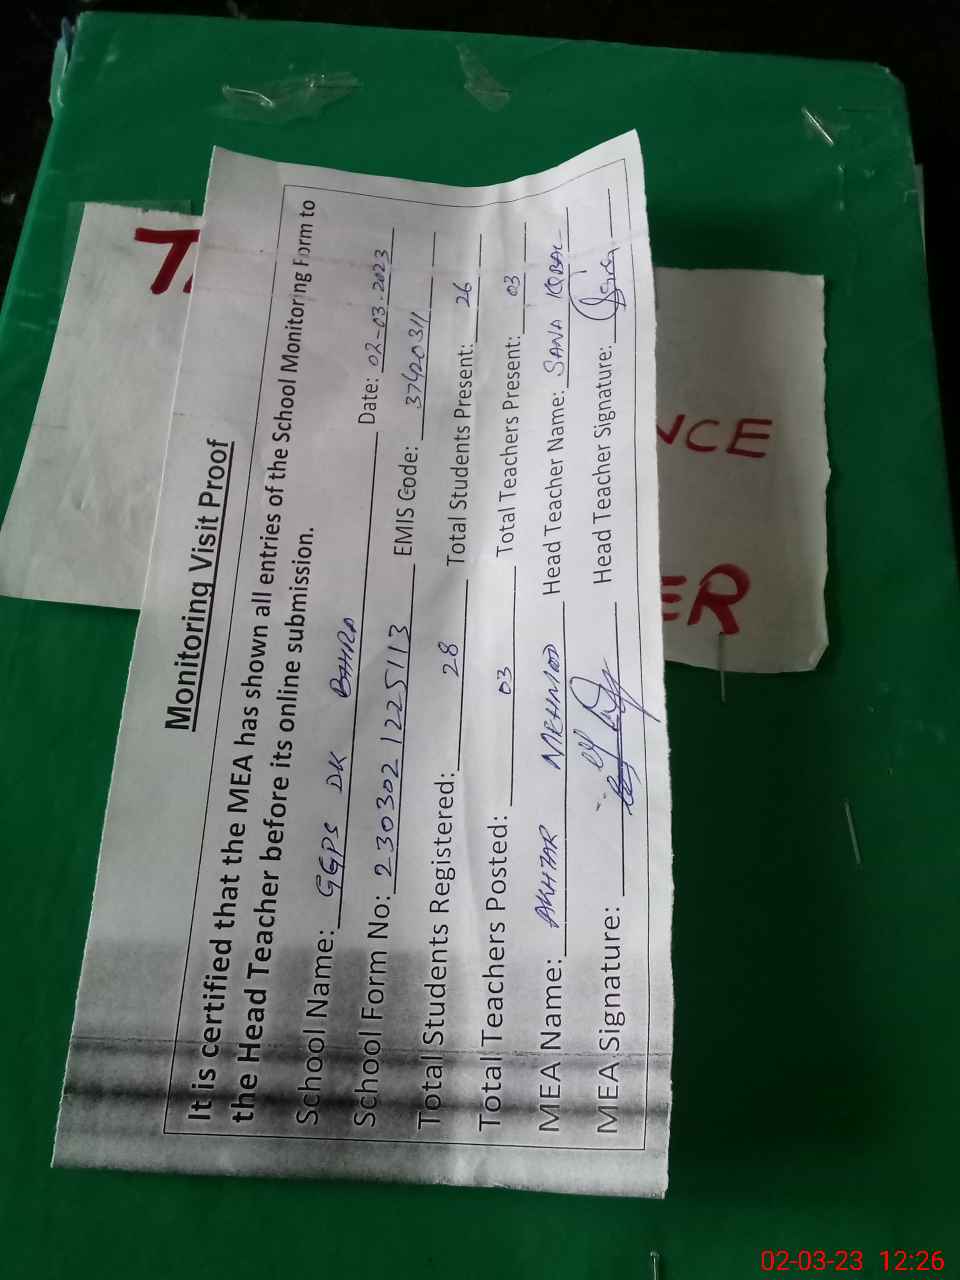 Monitoring Visit Proof
It is certified that the MEA has shown all entries of the School Monitoring Form to
the Head Teacher before its online submission.
School Name: GGPS DK BAHRD Date: 02-03-2023
School Form No: 230302 1225113 EMIS Code: 37420311
Total Students Registered: 28 Total Students Present: 26
Total Teachers Posted: 03 Total Teachers Present: 03
MEA Name: AKHTAR MEHMOOD Head Teacher Name: SANA IQBAL
MEA Signature: Head Teacher Signature:
NCE
ER
02-03-23 12:26